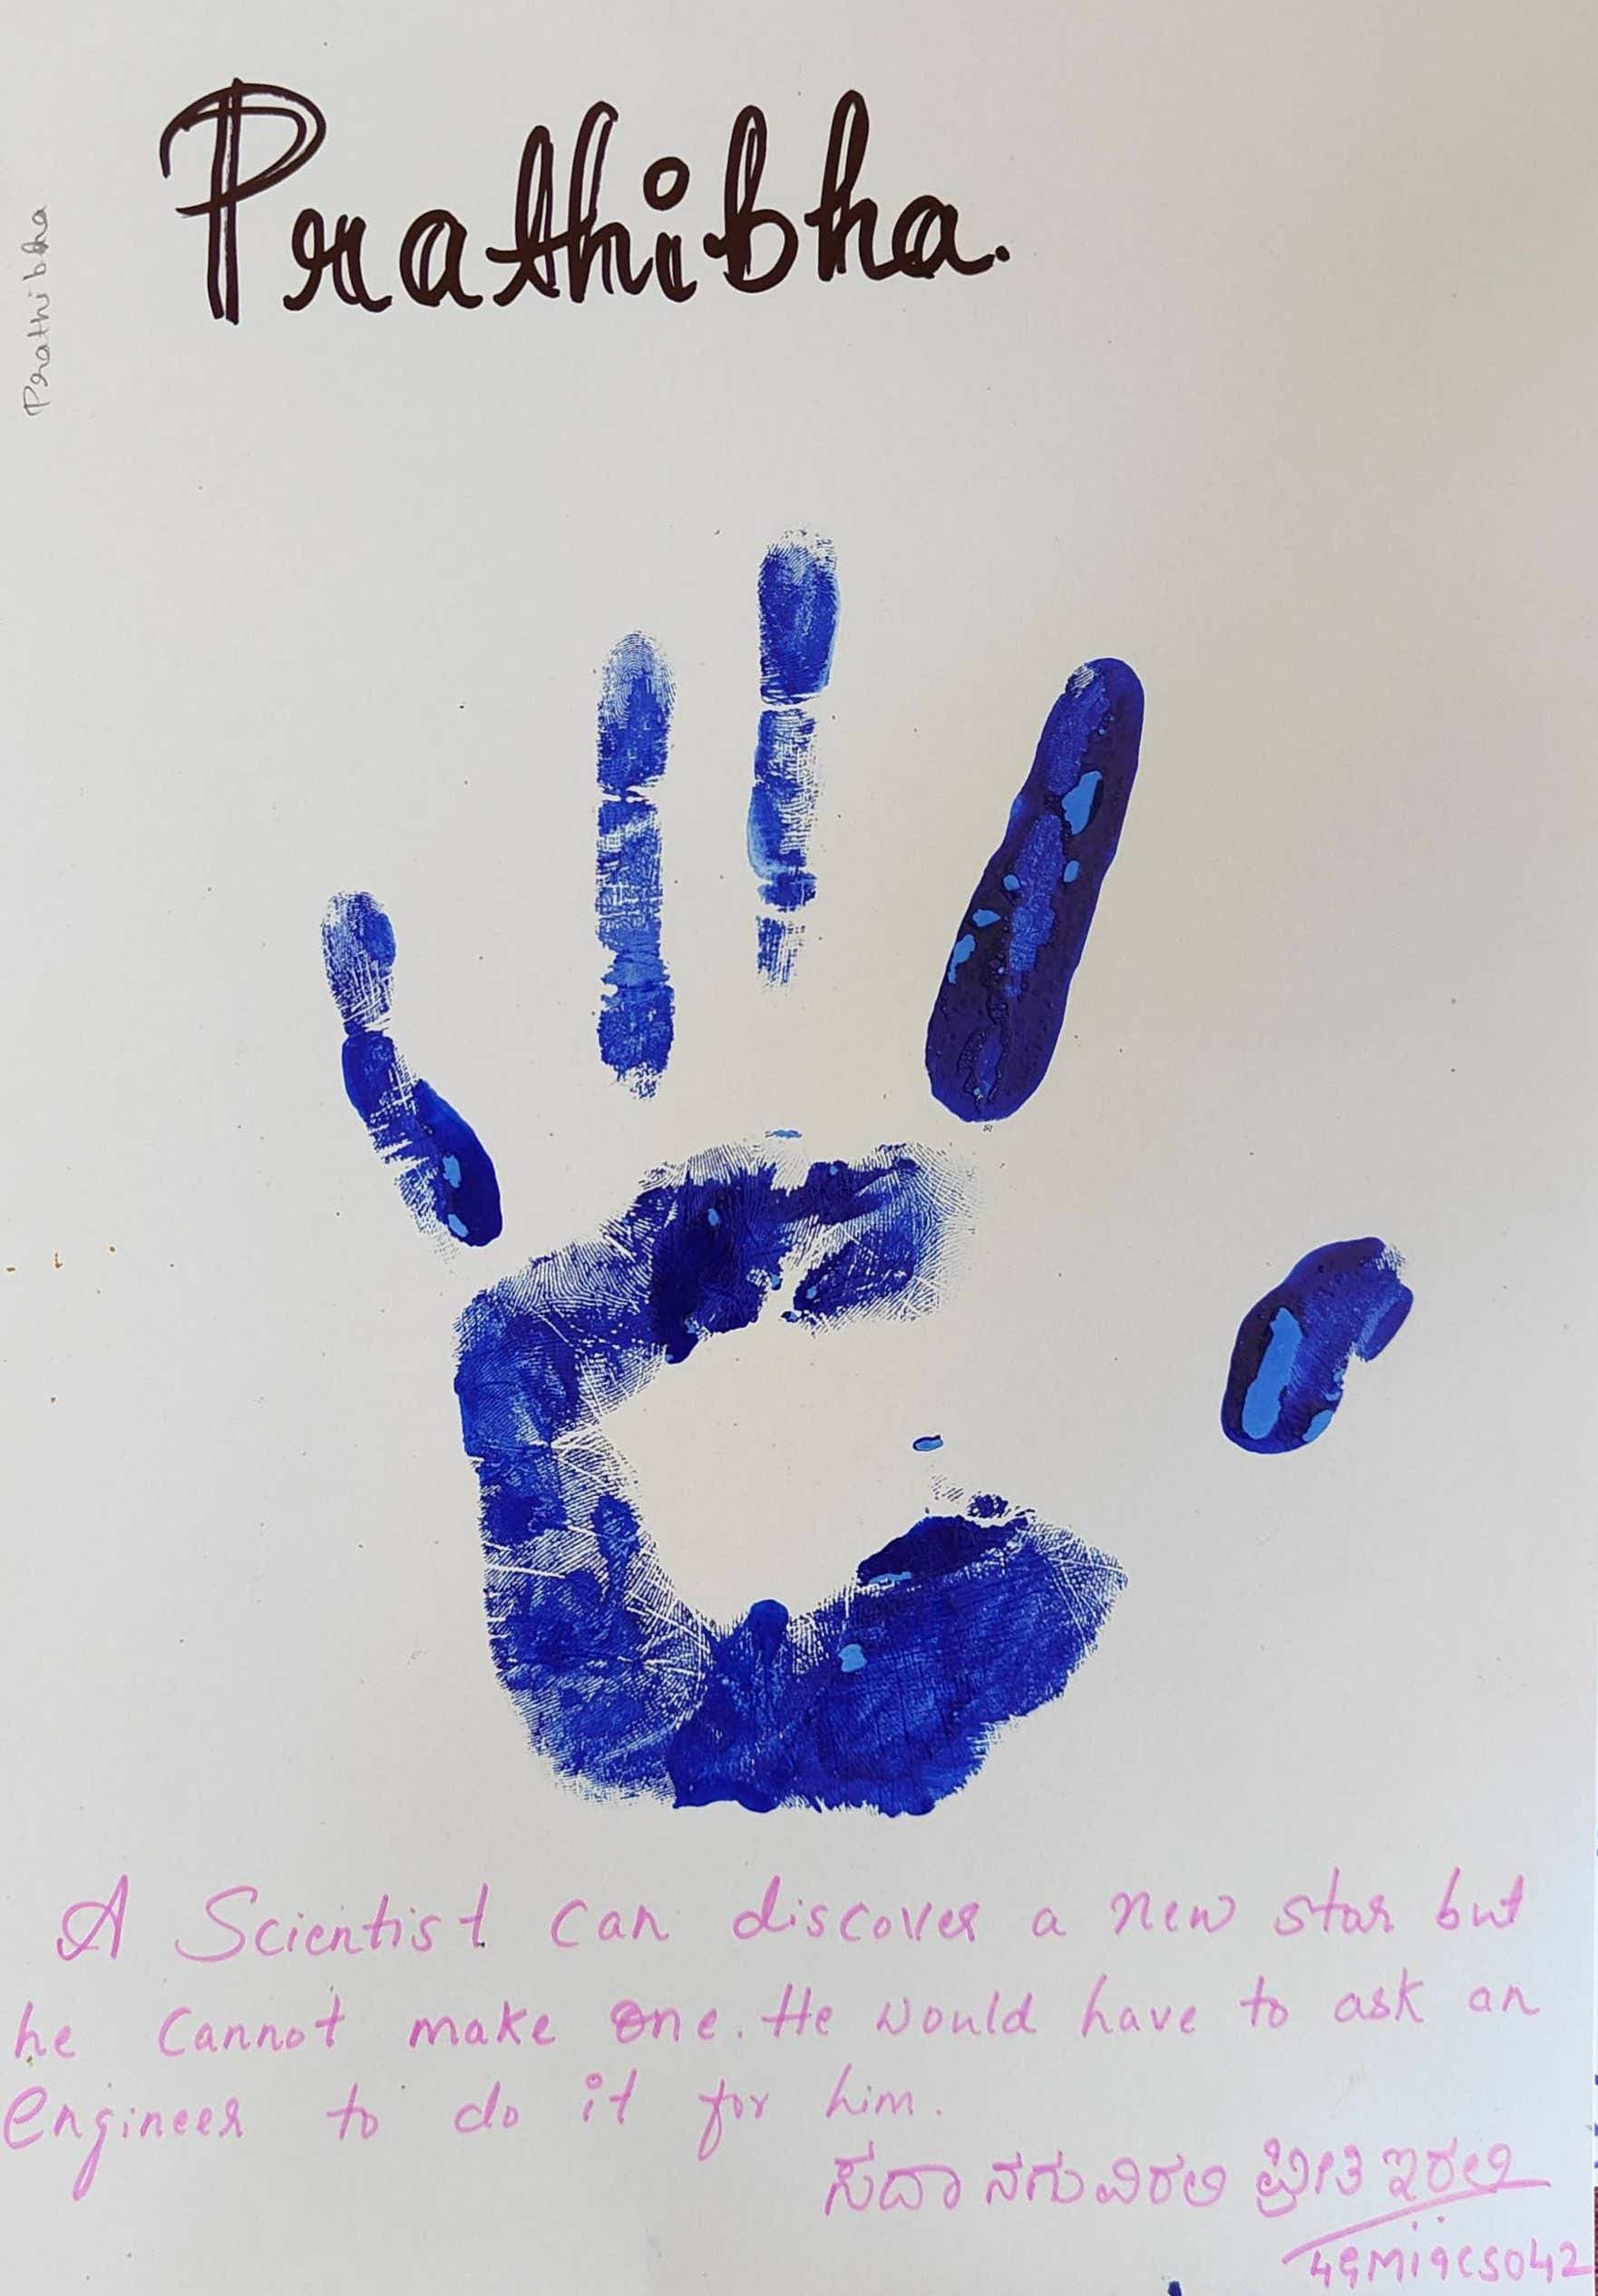 Prathibha.
Prathibha
A Scientist can discover a new star but
he cannot make one. He would have to ask an
Engineer to do it for him.
ಸದಾ ನಗುವಿರಲಿ ಪ್ರೀತಿ ಇರಲಿ
4GM19CS042